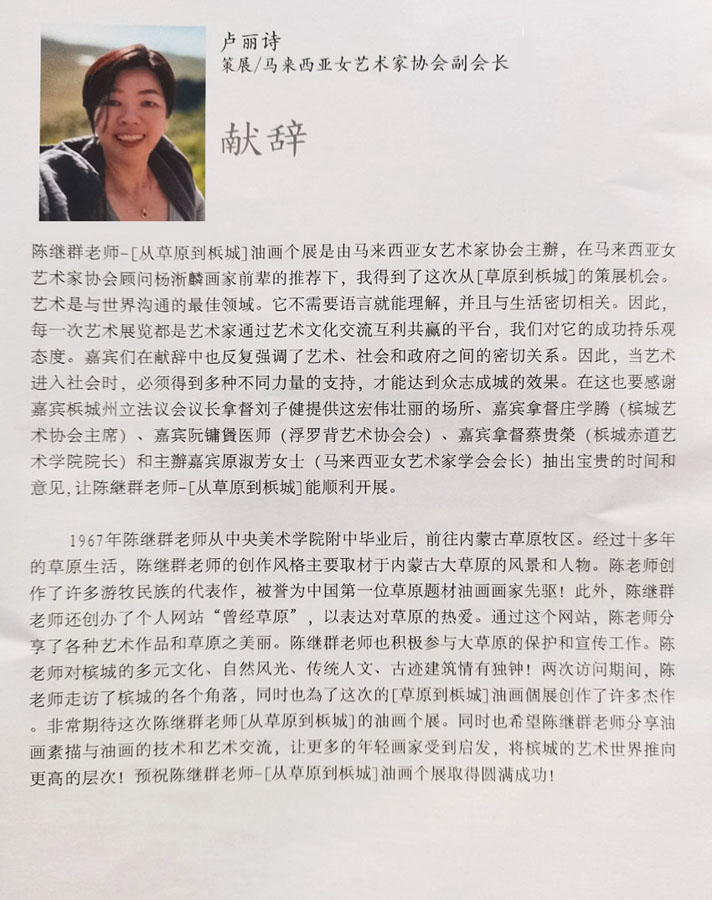 卢丽诗
策展/马来西亚女艺术家协会副会长
献辞
陈继群老师-[从草原到梹城]油画个展是由马来西亚女艺术家协会主辦，在马来西亚女
艺术家协会顾问杨淅麟画家前辈的推荐下，我得到了这次从[草原到梹城]的策展机会。
艺术是与世界沟通的最佳领域。它不需要语言就能理解，并且与生活密切相关。因此，
每一次艺术展览都是艺术家通过艺术文化交流互利共赢的平台，我们对它的成功持乐观
态度。嘉宾们在献辞中也反复强调了艺术、社会和政府之间的密切关系。因此，当艺术
进入社会时，必须得到多种不同力量的支持，才能达到众志成城的效果。在这也要感谢
嘉宾梹城州立法议会议长拿督刘子健提供这宏伟壮丽的场所、嘉宾拿督庄学腾（槟城艺
术协会主席）、嘉宾阮镛贇医师（浮罗背艺术协会会）、嘉宾拿督蔡贵榮（梹城赤道艺
术学院院长）和主辦嘉宾原淑芳女士（马来西亚女艺术家学会会长）抽出宝贵的时间和
意见,让陈継群老师-[从草原到梹城]能顺利开展。
1967年陈继群老师从中央美术学院附中毕业后，前往内蒙古草原牧区。经过十多年
的草原生活，陈继群老师的创作风格主要取材于内蒙古大草原的风景和人物。陈老师创
作了许多游牧民族的代表作，被誉为中国第一位草原题材油画画家先驱！此外，陈继群
老师还创办了个人网站“曾经草原”，以表达对草原的热爱。通过这个网站，陈老师分
享了各种艺术作品和草原之美丽。陈继群老师也积极参与大草原的保护和宣传工作。陈
老师对槟城的多元文化、自然风光、传统人文、古迹建筑情有独钟！两次访问期间，陈
老师走访了槟城的各个角落，同时也為了这次的[草原到梹城]油画個展创作了许多杰作
。非常期待这次陈继群老师[从草原到梹城]的油画个展。同时也希望陈继群老师分享油
画素描与油画的技术和艺术交流，让更多的年轻画家受到启发，将槟城的艺术世界推向
更高的层次！预祝陈继群老师-[从草原到梹城]油画个展取得圆满成功！